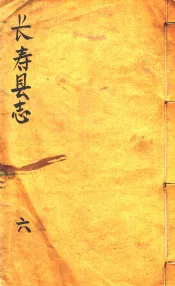 长寿县志
六